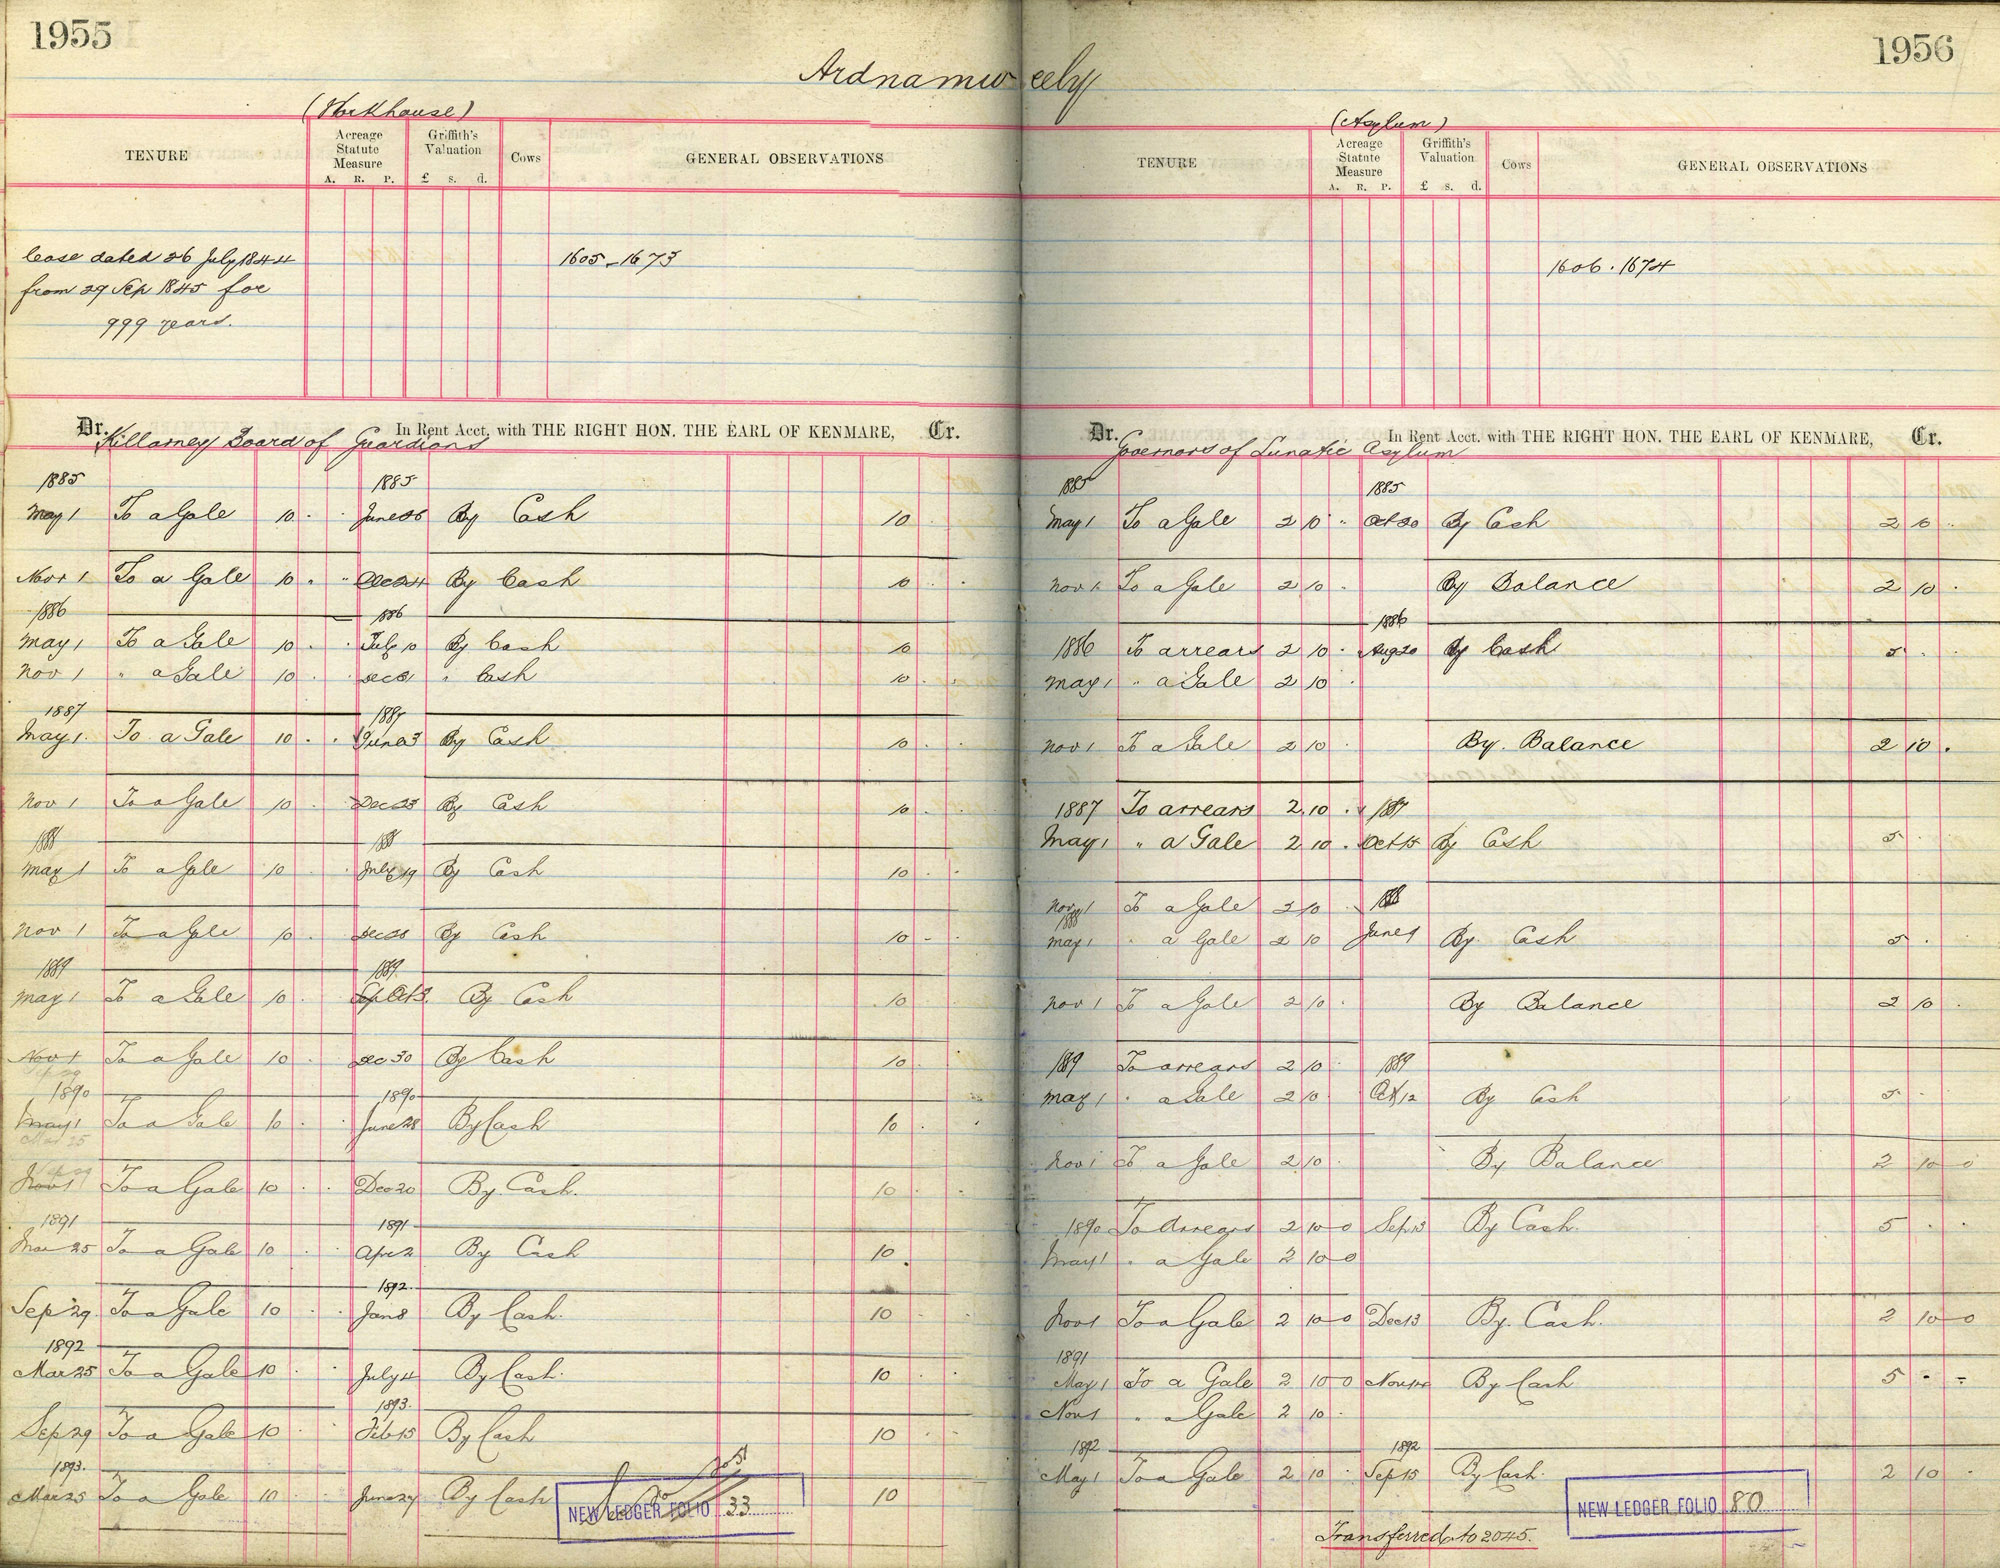 1955
Ardnamweely
1956
(Workhouse)
TENURE
Acreage Statute Measure
A. R. P.
Griffith's Valuation
£ s. d.
Cows
GENERAL OBSERVATIONS
lease dated 26 July 1844
from 29 Sep 1845 for
999 years.
1605 - 1673
Dr. In Rent Acct. with THE RIGHT HON. THE EARL OF KENMARE, Cr.
Killarney Board of Guardians
1885 1885
May 1 To a Gale 10 . . June 26 By Cash 10 .
Nov 1 To a Gale 10 . . Dec 24 By Cash 10 . .
1886 1886
May 1 To a Gale 10 . . July 10 By Cash 10
Nov 1 " a Gale 10 . Dec " Cash 10 . .
1887 1887
May 1. To a Gale 10 . . June 3 By Cash 10 . .
Nov 1 To a Gale 10 . Dec 23 By Cash 10 .
1888 1888
May 1 To a Gale 10 . July 19 By Cash 10 . .
Nov 1 To a Gale 10 . Dec By Cash 10 -
1889 1889
May 1 To a Gale 10 Oct 3. By Cash 10
Nov 1 To a Gale 10 . Dec 30 By Cash 10 .
Sep 29
1890 1890
May 1 To a Gale 10 . June 28 By Cash 10 .
Mar 25
Sep 29
Nov 1 To a Gale 10 . . Dec 20 By Cash. 10 . .
1891 1891
Mar 25 To a Gale 10 . . Apr 2 By Cash 10 .
1892.
Sep 29. To a Gale 10 . . Jan 8 By Cash. 10 .
1892
Mar 25 To a Gale 10 . July 4 By Cash. 10 .
1893.
Sep 29 To a Gale 10 . Feb 15 By Cash 10 .
1893.
Mar 25 To a Gale 10 . June 27 By Cash 10
NEW LEDGER FOLIO 33
(Asylum)
TENURE
Acreage Statute Measure
A. R. P.
Griffith's Valuation
£ s. d.
Cows
GENERAL OBSERVATIONS
1606 . 1674
Dr. In Rent Acct. with THE RIGHT HON. THE EARL OF KENMARE, Cr.
Governors of Lunatic Asylum
1885 1885
May 1 To a Gale 2 10 " Oct 20 By Cash 2 10 .
Nov 1. To a Gale 2 10 . By Balance 2 10 .
1886
1886 To arrears 2 10 . Aug 20 By Cash 5 . .
May 1 " a Gale 2 10 .
Nov 1 To a Gale 2 10 . By. Balance 2 10 .
1887 To arrears 2.10 . 1887
May 1 " a Gale 2 10 . Oct 15 By Cash 5 .
Nov 1 To a Gale 2 10 . 1888
1888
May 1 " a Gale 2 10 June 9 By. Cash 5 .
Nov 1 To a Gale 2 10 . By Balance 2 10 .
1889 To arrears 2 10 . 1889
May 1 " a Gale 2 10 . Oct 12 By Cash 5 . .
Nov 1 To a Gale 2 10 . By Balance 2 10 0
1890 To Arrears 2 10 0 Sep 13 By Cash. 5 . .
May 1 " a Gale 2 10 0
Nov 1 To a Gale 2 10 0 Dec 13 By. Cash. 2 10 0
1891
May 1 To a Gale 2 10 0 Nov 14 By Cash 5 . -
Nov 1 " a Gale 2 10 .
1892 1892
May 1 To a Gale 2 10 . Sep 15 By Cash. 2 10 .
NEW LEDGER FOLIO 80
Transferred to 2045.